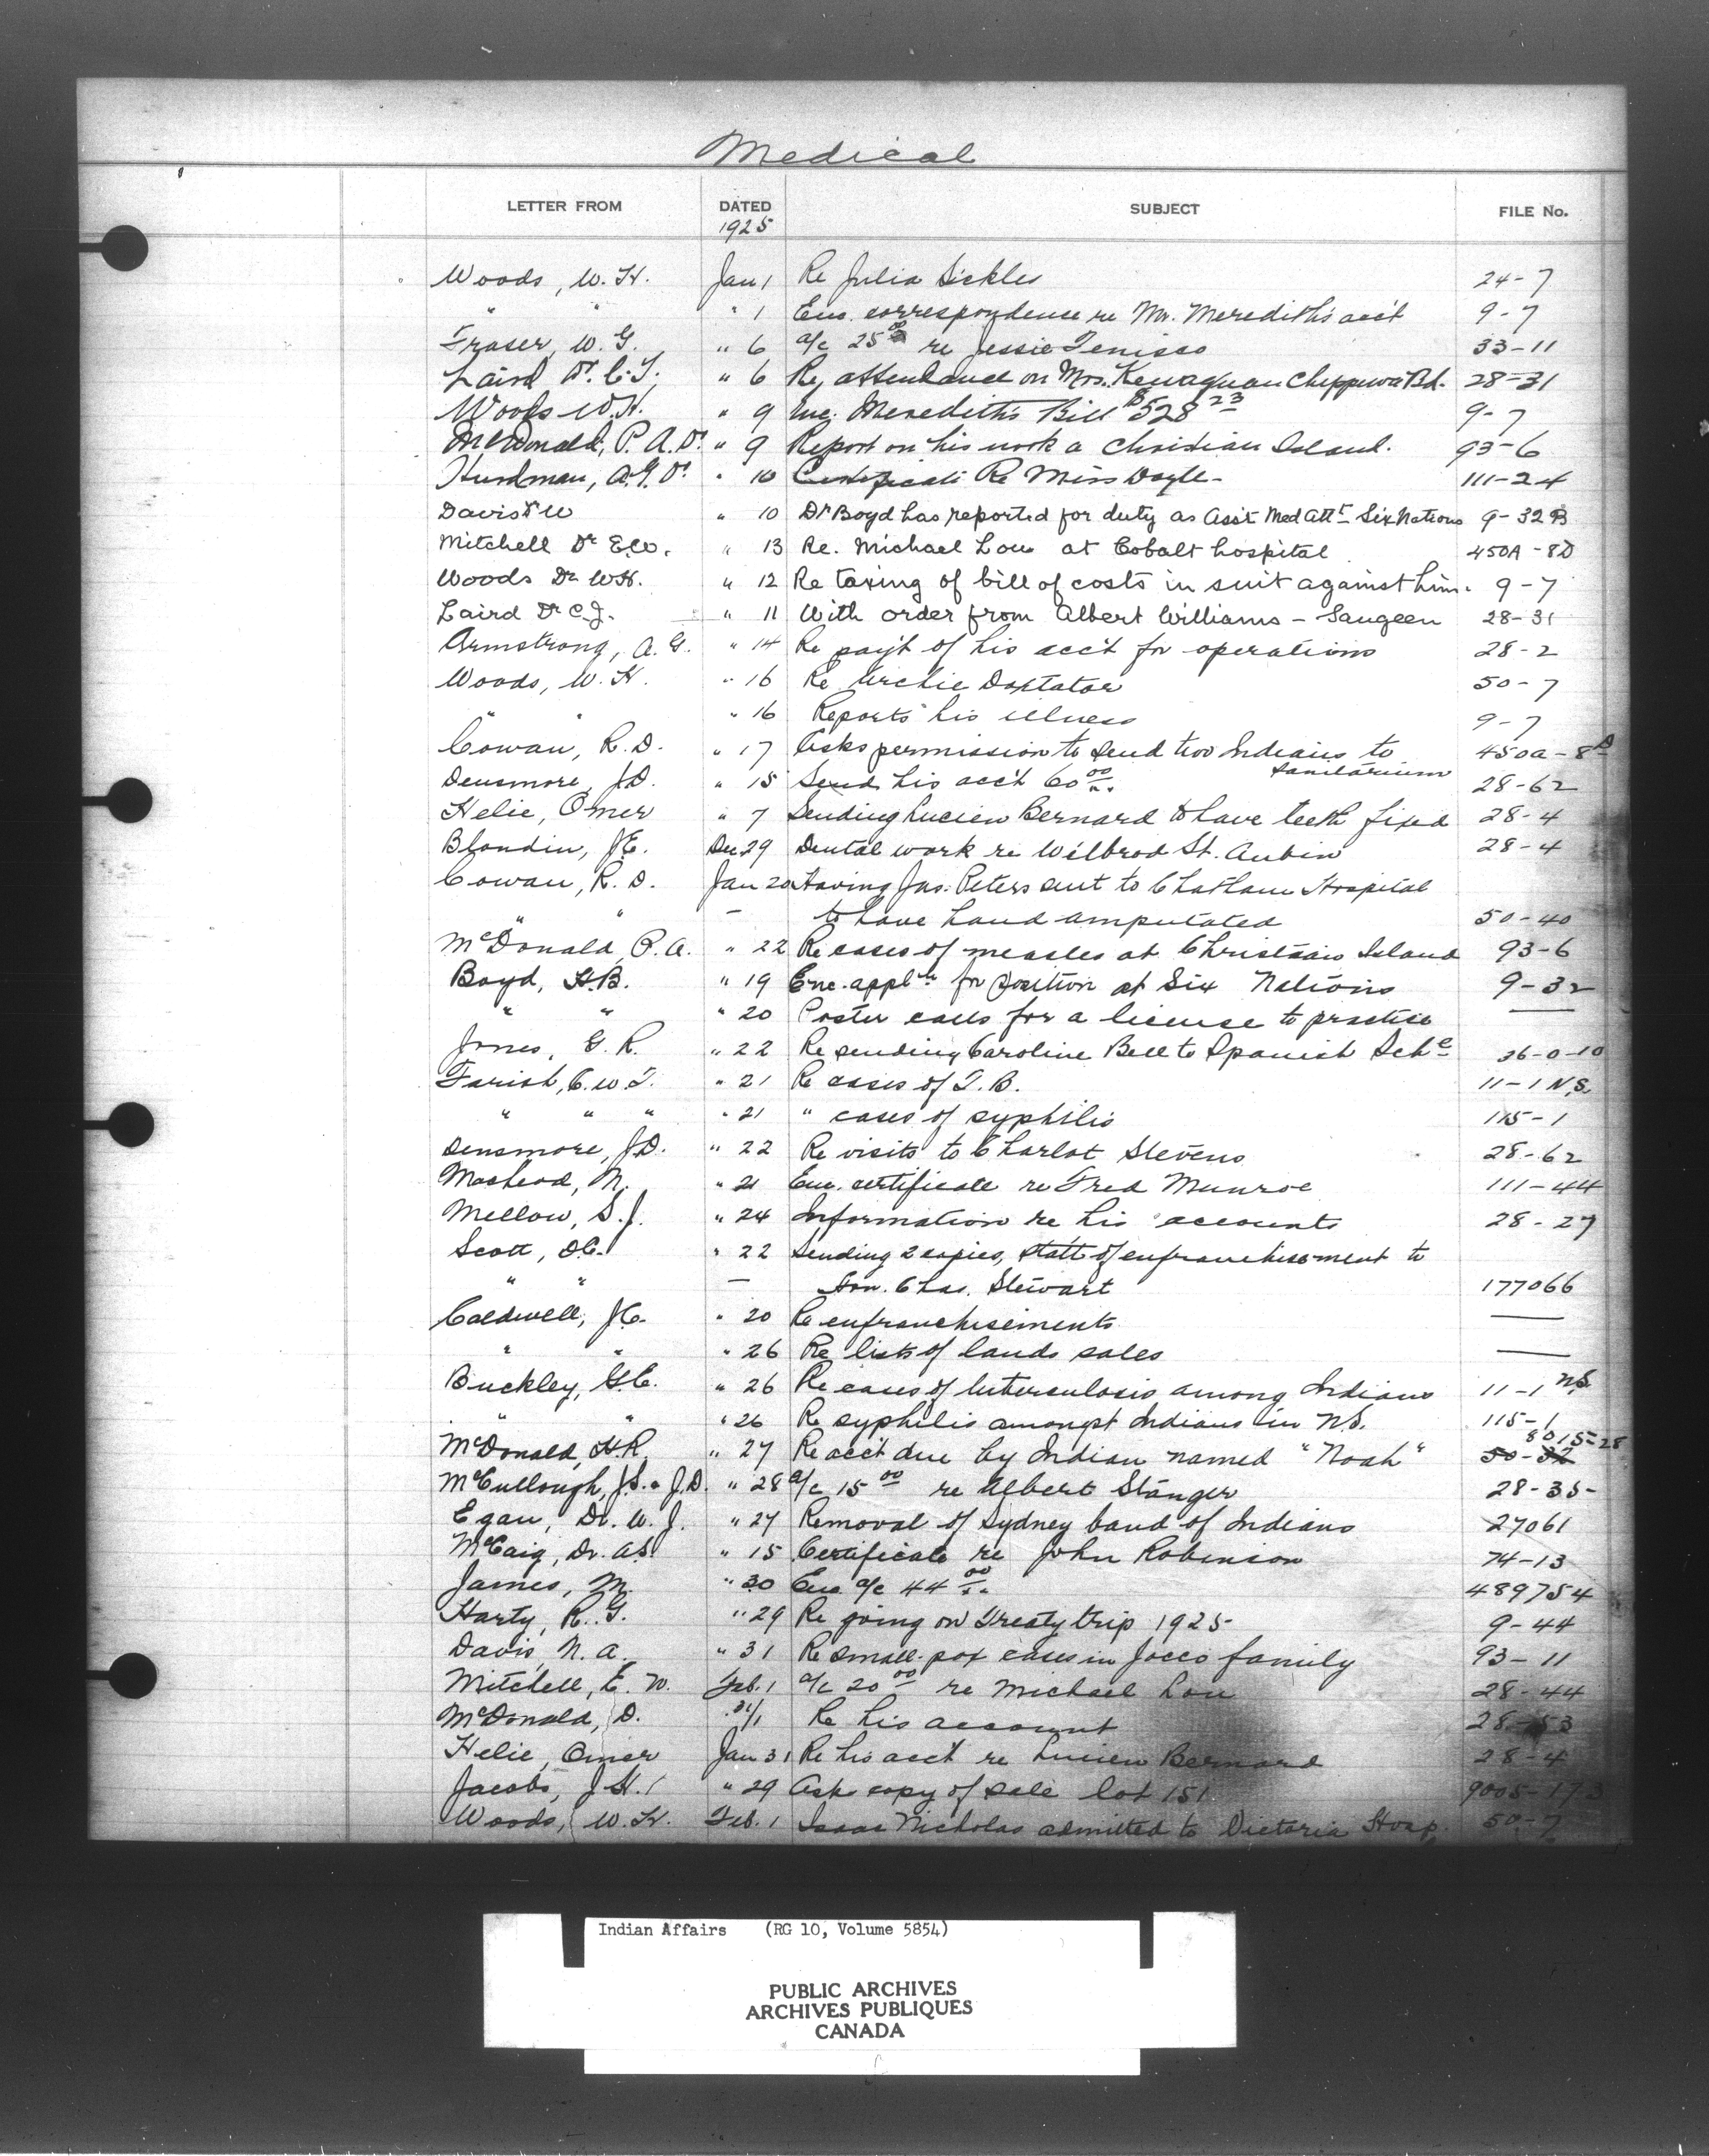 Medical
LETTER FROM DATED SUBJECT FILE No.
1925
Woods, W. H. Jan 1 Re Julia Sickles 24-7
" " " 1 Enc. correspondence re Mr. Meredith's acc't 9-7
Fraser, W. G. " 6 a/c 25 00 re Jessie Tenisco 33-11
Laird Dr. C. J. " 6 Re attendance on Mrs. Kewaquan Chippewa Bd. 28-31
Woods W. H. " 9 Inc. Meredith's Bill $528 23 9-7
McDonald, P. A. Dr. " 9 Report on his work a Christian Island. 93-6
Hurdman, A. G. Dr. " 10 Certificate Re Miss Doyle- 111-24
Davis Dr W " 10 Dr Boyd has reported for duty as Ass't Med Att't Six Nations 9-32B
Mitchell Dr E.W. " 13 Re. Michael Lou at Cobalt hospital 450A-8D
Woods Dr W.H. " 12 Re taxing of bill of costs in suit against him. 9-7
Laird Dr C.J. " 11 With order from Albert Williams - Saugeen 28-31
Armstrong, A. G. " 14 Re pay't of his acc't for operations 28-2
Woods, W. H. " 16 Re Archie Doxtator 50-7
" " " 16 Reports his illness 9-7
Cowan, R. D. " 17 Asks permission to send two Indians to 450a-8D
sanitarium
Densmore, J.D. " 15 Send his acc't 60 00 28-62
Helie, Omer " 7 Sending Lucien Bernard to have teeth fixed 28-4
Blondin, J.E. Dec 29 Dental work re Wilbrod St. Aubin 28-4
Cowan, R. D. Jan 20 Having Jas. Peters sent to Chatham Hospital
" " — to have hand amputated 50-40
McDonald, P. A. " 22 Re cases of measles at Christian Island 93-6
Boyd, H.B. " 19 Enc. appl'n for position at Six Nations 9-32
" " " 20 Poster calls for a license to practise —
Jones, G. R. " 22 Re sending Caroline Bell to Spanish Sch'l 36-0-10
Farish, C. W. T. " 21 Re cases of T. B. 11-1 N.S.
" " " " 21 " cases of syphilis 115-1
Densmore, J.D. " 22 Re visits to Charlot Stevens 28-62
MacLeod, N. " 21 Enc. certificate re Fred Munroe 111-44
Mellow, S. J. " 24 Information re his accounts 28-27
Scott, D.C. " 22 Sending 2 copies, stat't of enfranchisement to
" " — Hon. Chas. Stewart 177066
Caldwell, J.C. " 20 Re enfranchisements —
" " " 26 Re lists of lands sales —
Buckley, G.E. " 26 Re cases of tuberculosis among Indians 11-1 N.S.
" " " 26 Re syphilis amongst Indians in N.S. 115-1
8015-28
McDonald, H.R. " 27 Re acc't due by Indian named "Noah" 50-32
McCullough, J.S. & J.D. " 28 a/c 15 00 re Albert Stanger 28-35-
Egan, Dr. W. J. " 27 Removal of Sydney band of Indians 27061
McCaig, Dr. A.S. " 15 Certificate re John Robinson 74-13
James, M. " 30 Enc a/c 44 00 489754
Harty, R. G. " 29 Re going on Treaty trip 1925 9-44
Davis, N. A. " 31 Re small-pox cases in Jocco family 93-11
Mitchell, E. W. Feb. 1 a/c 20 00 re Michael Lou 28-44
McDonald, D. 31/1 Re his account 28-53
Helie, Omer Jan 31 Re his acc't re Lucien Bernard 28-4
Jacobs, J. H. " 29 Asks copy of sale lot 151 9005-173
Woods, W. H. Feb. 1 Isaac Nicholas admitted to Victoria Hosp. 50-7
Indian Affairs (RG 10, Volume 5854)
PUBLIC ARCHIVES
ARCHIVES PUBLIQUES
CANADA